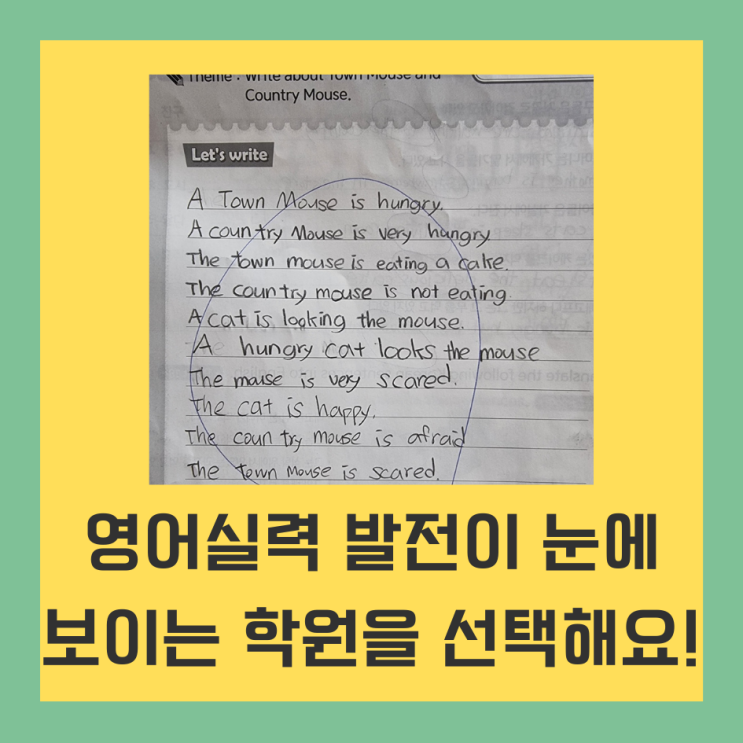 Theme : Write about Town Mouse and
Country Mouse.
Let's write
A Town Mouse is hungry.
A country Mouse is very hungry
The town mouse is eating a cake.
The country mouse is not eating.
A cat is looking the mouse.
A hungry cat looks the mouse
The mouse is very scared.
The cat is happy.
The country mouse is afraid
The town mouse is scared.
영어실력 발전이 눈에
보이는 학원을 선택해요!